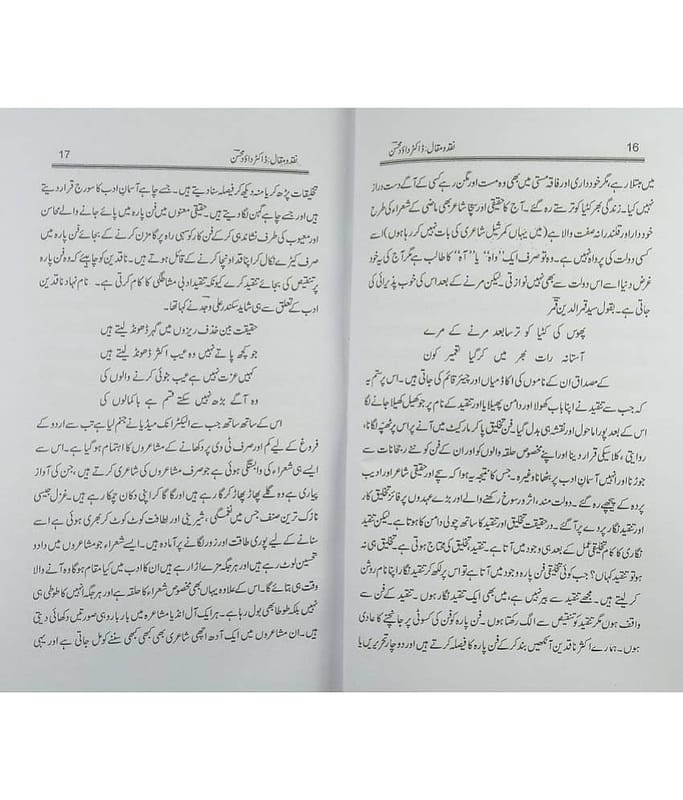 16
نقد و مقال: ڈاکٹر داؤد محسنؔ
میں مبتلا رہے، مگر خودداری اور فاقہ مستی میں بھی وہ مست اور مگن رہے کسی کے آگے دست دراز
نہیں کیا۔ زندگی بھر کٹیا کو ترستے رہ گئے۔ آج کا حقیقی اور سچا شاعر بھی ماضی کے شعراء کی طرح
خوددار اور قلندرانہ صفت والا ہے (میں یہاں کمرشیل شاعری کی بات نہیں کر رہا ہوں) اسے
کسی دولت کی پرواہ نہیں ہے۔ وہ تو صرف ایک ''واہ'' یا ''آہ'' کا طالب ہے مگر آج کی یہ خود
غرض دنیا اسے اس دولت سے بھی نہیں نوازتی۔ لیکن مرنے کے بعد اس کی خوب پذیرائی کی
جاتی ہے۔ بقول سید قمرالدین قمرؔ
پھوس کی کٹیا کو ترسا بعد مرنے کے مرے
آستانہ رات بھر میں کر گیا تعمیر کون
کے مصداق ان کے ناموں کی اکاڈمیاں اور چیئر قائم کی جاتی ہیں۔ اس پر ستم یہ
کہ جب سے تنقید نے اپنا باب کھولا اور دامن پھیلایا اور تنقید کے نام پر جو کھیل کھیلا جانے لگا
اس کے بعد پورا ماحول اور نقشہ ہی بدل گیا۔ فن تخلیق پا کر مارکیٹ میں آنے پر اس پر ٹھپہ لگانا،
روایتی، کلاسیکی قرار دینا اور اپنے مخصوص حلقہ والوں کو اور ان کے فن کو نئے رجحانات سے
جوڑنا اور انہیں آسمانِ ادب پر بٹھانا وغیرہ۔ جس کا نتیجہ یہ ہوا کہ سچے اور حقیقی شاعر اور ادیب
پردہ کے پیچھے رہ گئے۔ دولت مند، اثر و سوخ رکھنے والے اور بڑے عہدوں پر فائز تخلیق کار
اور تنقید نگار پردے پر آ گئے۔ درحقیقت تخلیق اور تنقید کا ساتھ چولی دامن کا ہوتا ہے۔ لیکن تنقید
نگاری کا کام تخلیقی عمل کے بعد ہی وجود میں آتا ہے۔ تنقید، تخلیق کی محتاج ہوتی ہے۔ تخلیق ہی نہ
ہو تو تنقید کہاں؟ جب کوئی تخلیقی فن پارہ وجود میں آتا ہے تو اس پر لکھ کر تنقید نگار اپنا نام روشن
کر لیتے ہیں۔ مجھے تنقید سے بیر نہیں ہے، میں بھی ایک تنقید نگار ہوں۔ تنقید کے فن سے
واقف ہوں مگر تنقید کو تنقیص سے الگ رکھتا ہوں۔ فن پارہ کو فن کی کسوٹی پر جانچنے کا عادی
ہوں۔ ہمارے اکثر ناقدین آنکھیں بند کر کے فن پارہ کا فیصلہ کرتے ہیں اور دو چار تحریریں یا
17
نقد و مقال: ڈاکٹر داؤد محسنؔ
تخلیقات پڑھ کر یا منہ دیکھ کر فیصلہ سنا دیتے ہیں۔ جسے چاہے آسمانِ ادب کا سورج قرار دیتے
ہیں اور جسے چاہے گہن لگا دیتے ہیں۔ حقیقی معنوں میں فن پارہ میں پائے جانے والے محاسن
اور معیوب کی طرف نشاندہی کر کے فن کار کو سہی راہ پر گامزن کرنے کے بجائے فن پارہ کا
صرف کیڑے نکال کر اپنا قد اونچا کرنے کے قائل ہوتے ہیں۔ ناقدین کو چاہیئے کہ وہ فن پارہ
پر تنقیص کی بجائے تنقید کرے کیونکہ تنقید ادبی مشاطگی کا کام کرتی ہے۔ نام نہاد ناقدین
ادب کے تعلق سے ہی شاید سکندر علی وجدؔ نے کہا تھا۔
حقیقت بین خذف ریزوں میں گہر ڈھونڈ لیتے ہیں
جو کچھ پاتے نہیں وہ عیب اکثر ڈھونڈ لیتے ہیں
کہیں عزت نہیں ہے عیب جوئی کرنے والوں کی
وہ آگے بڑھ نہیں سکتے قسم ہے باکمالوں کی
اس کے ساتھ ساتھ جب سے الیکٹرانک میڈیا نے جنم لیا ہے تب سے اردو کے
فروغ کے لیے کم اور صرف ٹی وی پر دکھانے کے مشاعروں کا اہتمام ہو گیا ہے۔ اس سے
ایسے ہی شعراء کی وابستگی ہوئی ہے جو صرف مشاعروں کی شاعری کرتے ہیں، جن کی آواز
پیاری ہے وہ گلے پھاڑ پھاڑ کر گا رہے ہیں اور گا گا کر اپنی دکان چمکا رہے ہیں۔ غزل جیسی
نازک ترین صنف جس میں نغمگی، شیرینی اور لطافت کوٹ کوٹ کر بھری ہوئی ہے اسے
سنانے کے لیے پوری طاقت اور زور لگانے پر آمادہ ہیں۔ ایسے شعراء جو مشاعروں میں داد و
تحسین لوٹ رہے ہیں اور ہر جگہ مزے اڑا رہے ہیں ان کا ادب میں کیا مقام ہوگا وہ آنے والا
وقت ہی بتائے گا۔ اس کے علاوہ یہاں بھی مخصوص شعراء کا حلقہ ہے اور ہر جگہ انہیں کا طوطی ہی
نہیں بلکہ طوطا بھی بول رہا ہے۔ ہر ایک آل انڈیا مشاعرہ میں بار بار وہی صورتیں دکھائی دیتی
ہیں۔ ان مشاعروں میں ایک آدھ اچھی شاعری بھی کبھی کبھی سننے کو مل جاتی ہے اور یہی